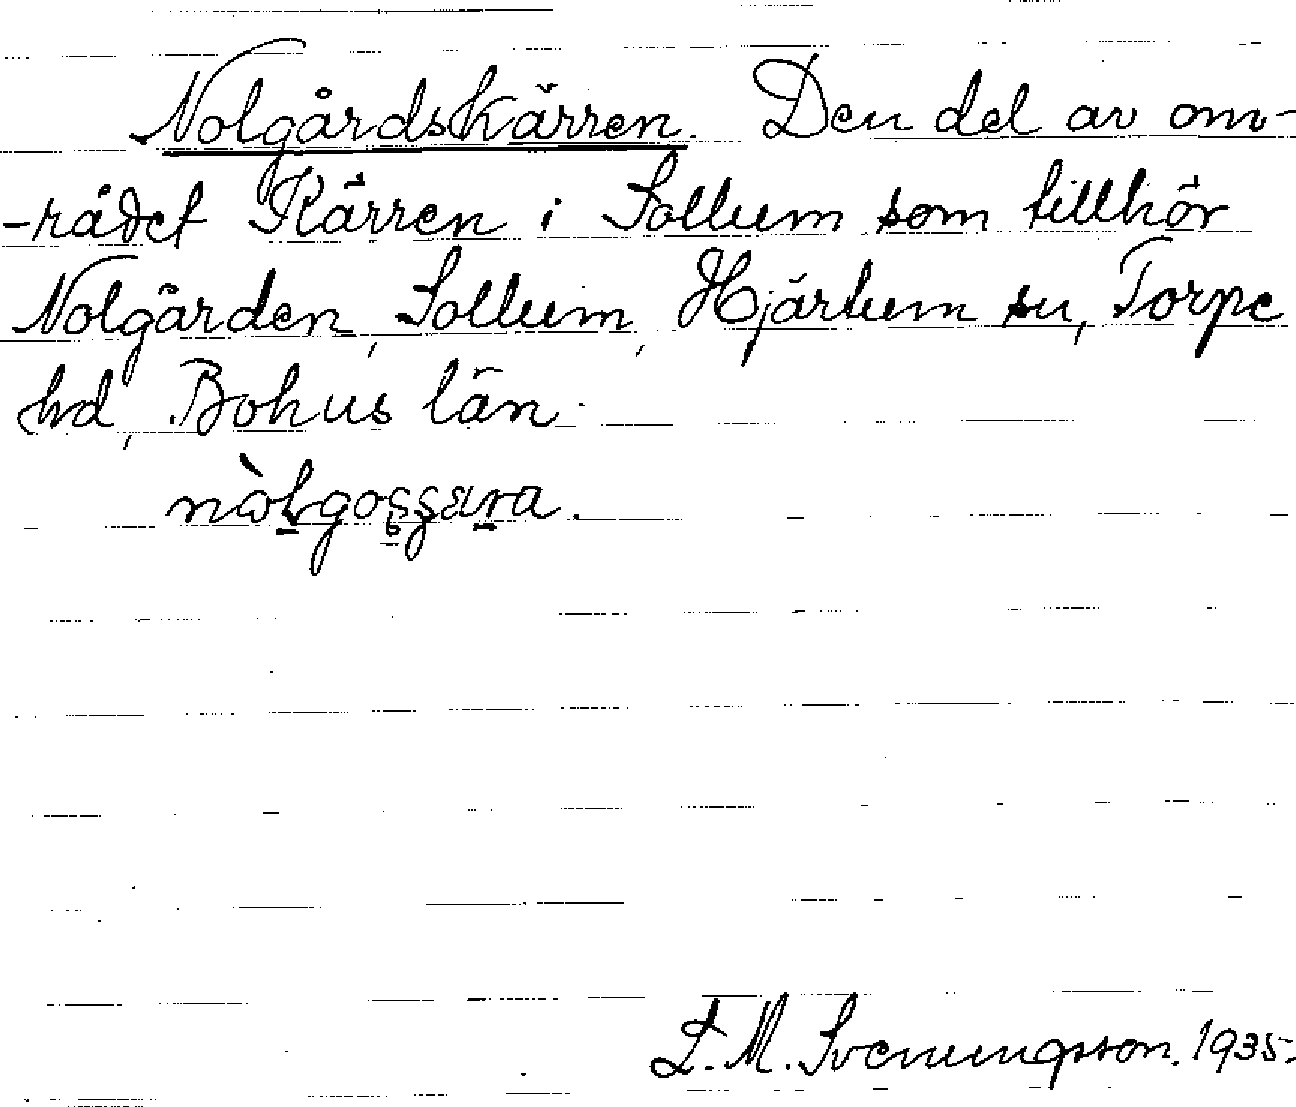 Nolgårdskärren. Den del av om-
-rådet Kärren i Sollum som tillhör
Nolgården, Sollum, Hjärtum sn, Torpe
hd, Bohus län.
1935.